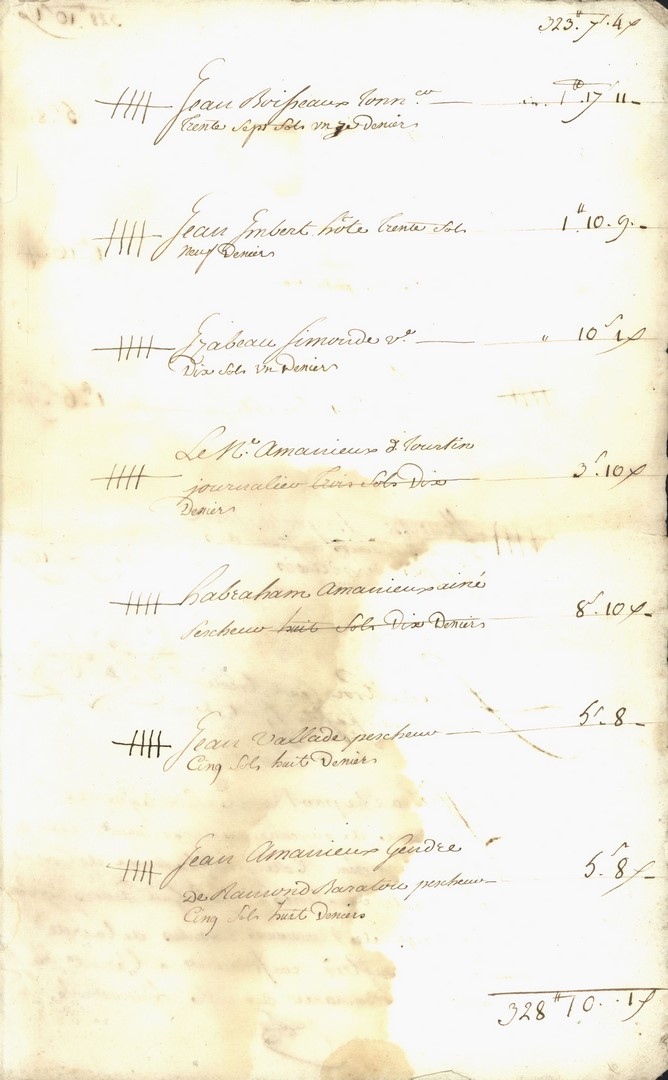 323ᵗᵗ 7ˢ 4ᵈ
Jean Boisseaux Tonn.eur 1ᵗᵗ 17ˢ 11
Trente sept sols unze Deniers
Jean Imbert hôte trente sols 1ᵗᵗ 10. 9.
neuf Deniers
Izabeau Simonde v.e " 10ˢ 1ᵈ
Dix sols vn Deniers
Le N.e Amanieux d. Tourtin
journalier trois sols Dix 3ˢ 10ᵈ
Deniers
habraham Amanieux ainé
pescheur huit sols Dix Deniers 8ˢ 10ᵈ
Jean Vallade pescheur 5ˢ 8
Cinq sols huit Deniers
Jean Amanieux Gendre
De Ramond pescheur 5ˢ 8ᵈ
Cinq sols huit Deniers
328ᵗᵗ 10ˢ 1ᵈ